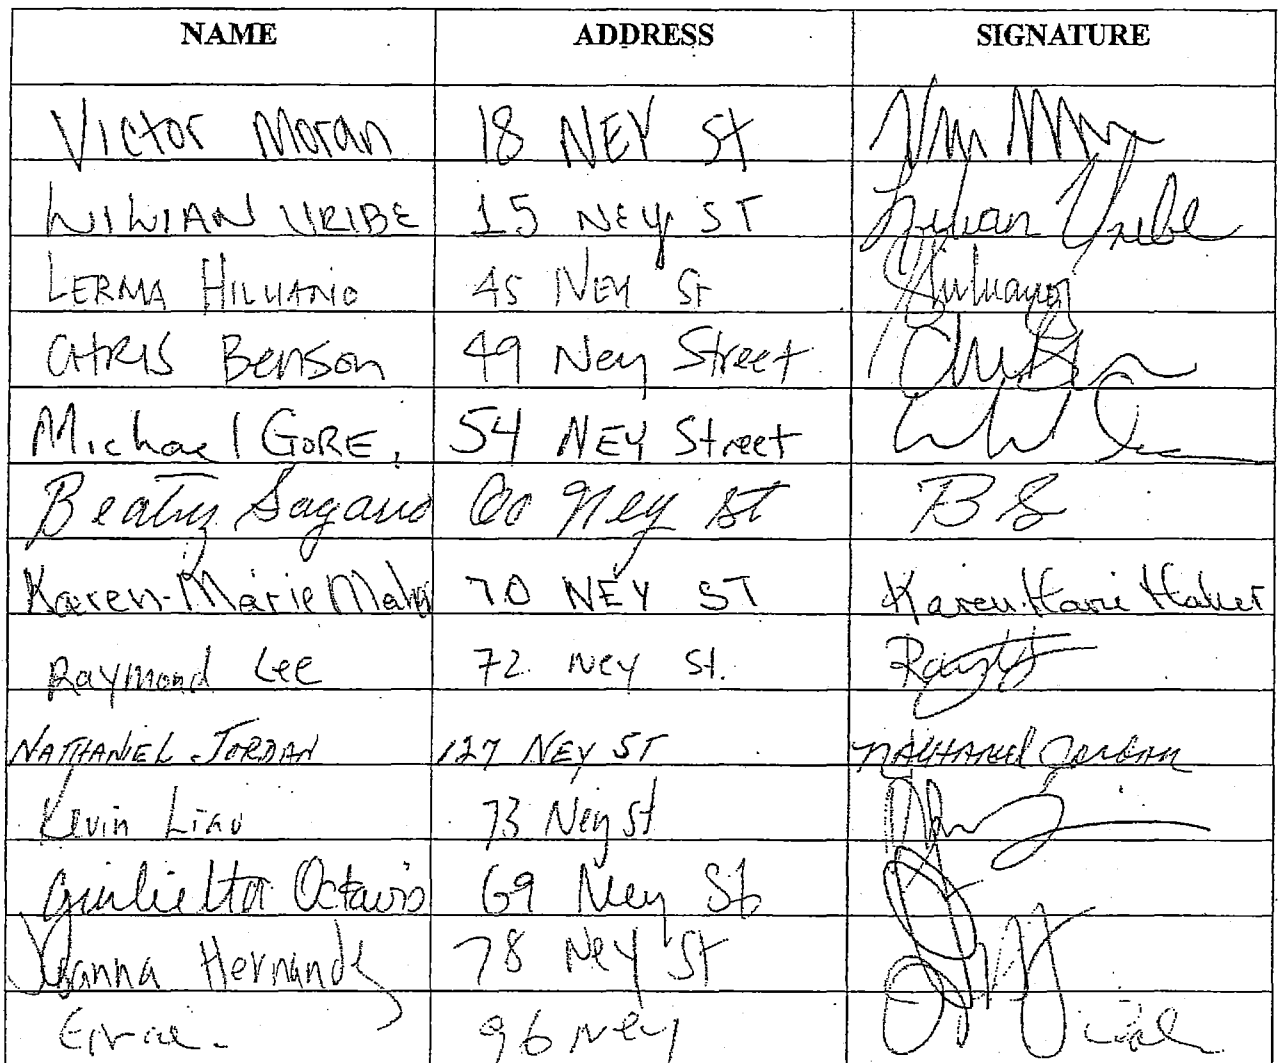 NAME ADDRESS SIGNATURE
Victor Moran 18 NEY St
LILLIAN URIBE 15 Ney ST Lilian Uribe
LERMA HILVANO 45 NEY St Hilvano
CHRIS Benson 49 Ney Street
Michael GORE, 54 NEY Street
Beatriz 60 Ney St BS
Karen-Marie 70 NEY ST Karen-Marie
Raymond Lee 72 Ney St.
NATHANIEL JORDAN 127 NEY ST NATHANIEL Jordan
Kevin Liau 73 Ney St
Giulietta Octavio 69 Ney St
Hernandz 78 Ney St
96 Ney